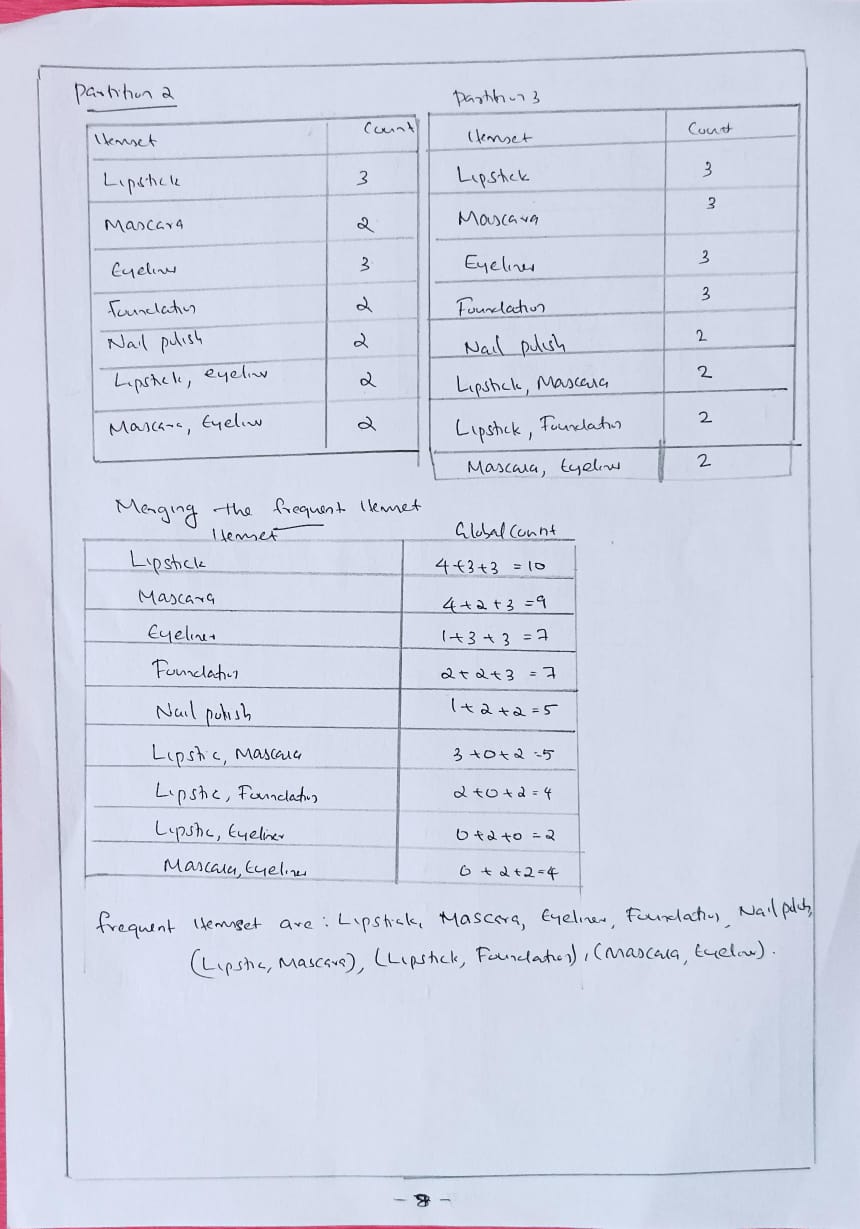 Partition 2
Itemset Count
Lipstick 3
Mascara 2
Eyeliner 3
Foundation 2
Nail polish 2
Lipstick, eyeliner 2
Mascara, Eyeliner 2
Partition 3
Itemset Count
Lipstick 3
Mascara 3
Eyeliner 3
Foundation 3
Nail polish 2
Lipstick, Mascara 2
Lipstick, Foundation 2
Mascara, Eyeliner 2
Merging the frequent Itemset
Itemset Global Count
Lipstick 4+3+3 = 10
Mascara 4+2+3 = 9
Eyeliner 1+3+3 = 7
Foundation 2+2+3 = 7
Nail polish 1+2+2 = 5
Lipstic, Mascara 3+0+2 = 5
Lipstic, Foundation 2+0+2 = 4
Lipstic, Eyeliner 0+2+0 = 2
Mascara, Eyeliner 0+2+2 = 4
frequent Itemset are : Lipstick, Mascara, Eyeliner, Foundation, Nail polish,
(Lipstic, Mascara), (Lipstick, Foundation), (Mascara, Eyeliner).
- 8 -